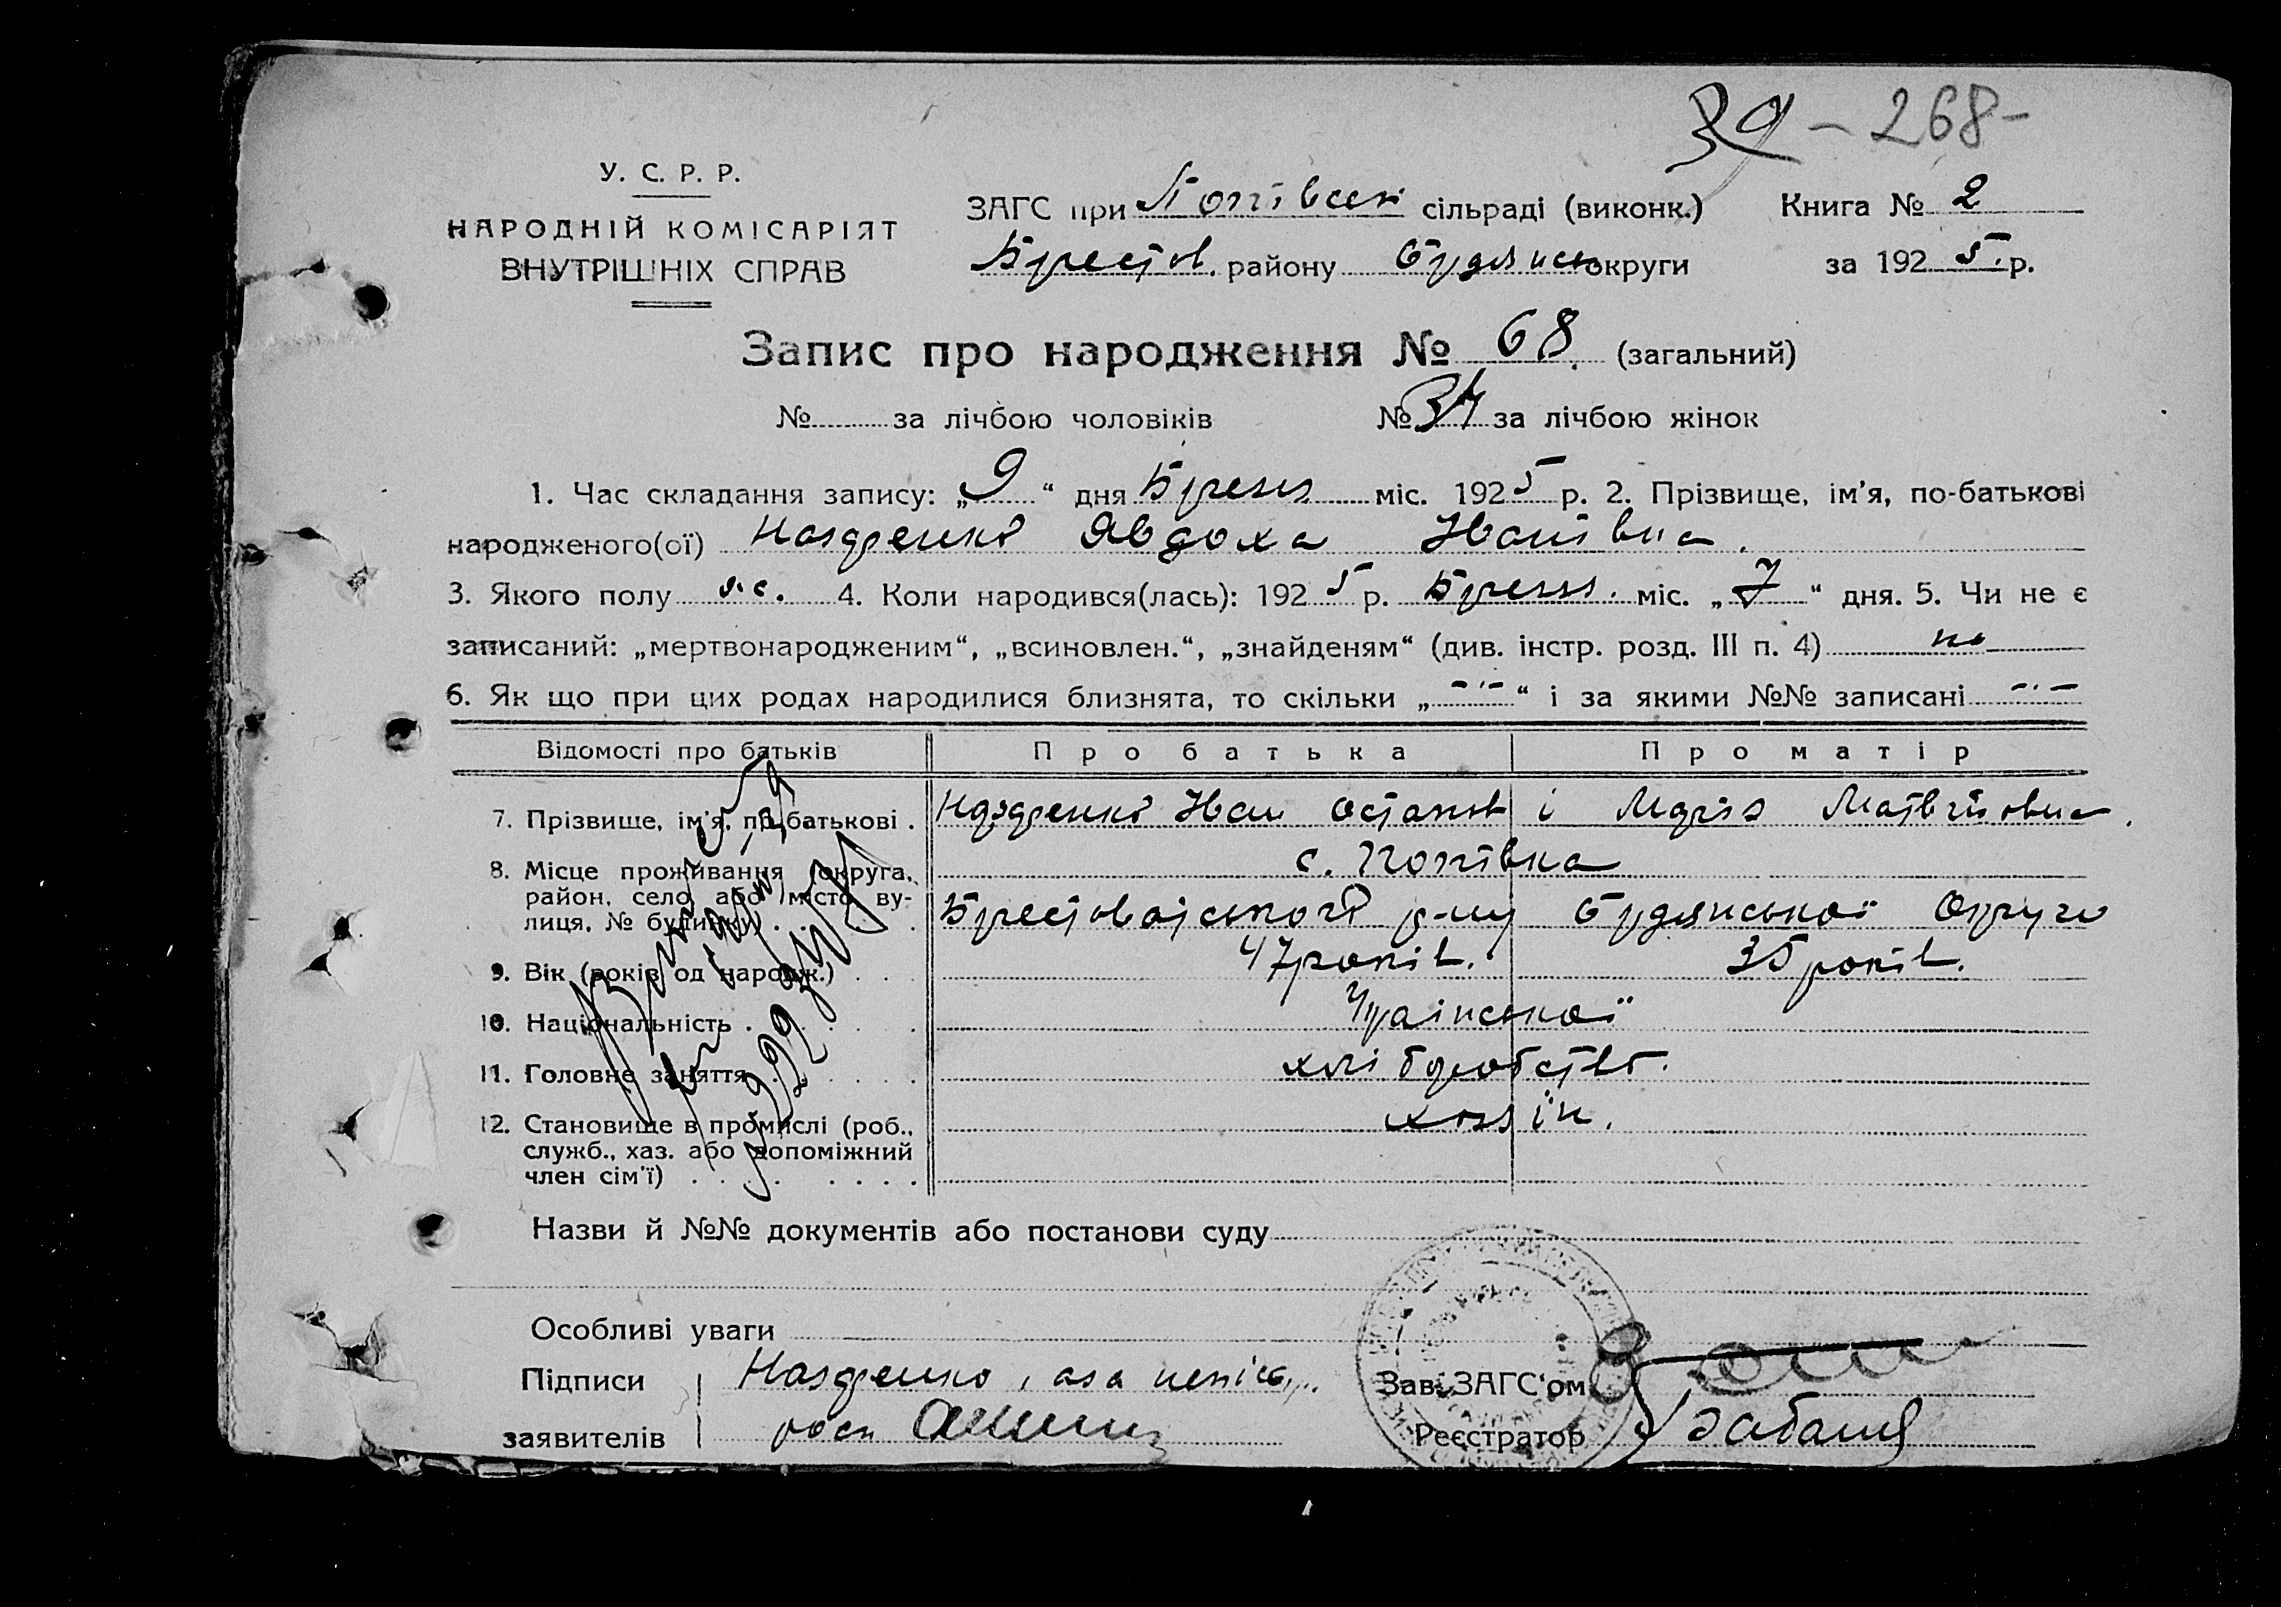 39 – 268 –
У. С. Р. Р.
НАРОДНІЙ КОМІСАРІЯТ
ВНУТРІШНІХ СПРАВ
ЗАГС при Попівскі сільраді (виконк.) Книга № 2
Брестов. району Бердянсь округи за 192 5 р.
Запис про народження № 68. (загальний)
№ за лічбою чоловіків № 34 за лічбою жінок
1. Час складання запису: „9“ дня Брезня міс. 1925 р. 2. Прізвище, ім'я, по-батькові
народженого(ої) Наздренко Явдоха Іванівна.
3. Якого полу ж. 4. Коли народився(лась): 1925 р. Брезня. міс. „7“ дня. 5. Чи не є
записаний: „мертвонародженим“, „всиновлен.“, „знайденям“ (див. інстр. розд. III п. 4) не
6. Як що при цих родах народилися близнята, то скільки „-"-“ і за якими №№ записані -"-
Відомості про батьків Про батька Про матір
7. Прізвище, ім'я, по батькові . Наздренко Иван Остапов і Марія Матвійовна.
8. Місце проживання (округа, с. Попівка
район, село або місто, ву-
лиця, № будинку) . . . Брестовацького р-ну Бердянської Округи
9. Вік (років од народж.) . . . 47 років. 35 років.
10. Національність . . . . . . Украінської
11. Головне заняття . . . . . . хліборобство.
12. Становище в промислі (роб., хозяїн.
служб., хаз. або допоміжний
член сім'ї) . . . . . . . .
1922
Назви й №№ документів або постанови суду
Особливі уваги
Підписи Наздренко, а за
заявителів росп
Зав. ЗАГС'ом
Реєстратор